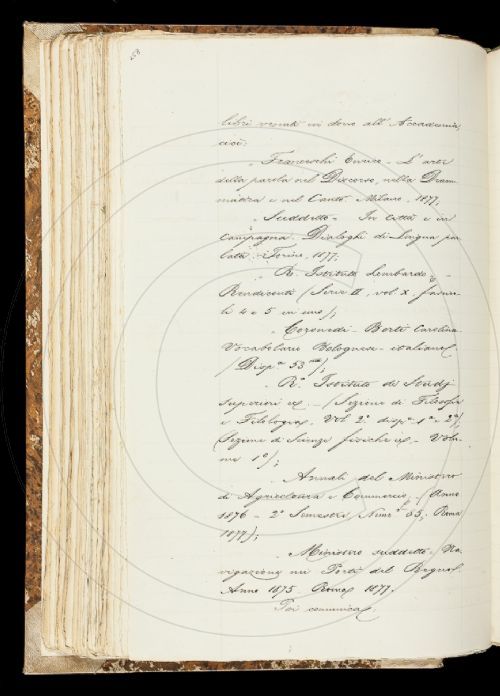 libri venuti in dono all'Accademia,
cioè:
„ Franceschi Enrico - L'arte
della parola nel Discorso, nella Dram-
matica e nel Canto - Milano, 1877;
„ Suddetto - In Città e in
Campagna. Dialoghi di Lingua par
lata - Torino, 1877;
„ R. Istituto Lombardo -
Rendiconti (Serie II, vol. X, fascico
li 4 e 5 in uno);
„ Coronedi-Berti Carolina
Vocabolario Bolognese-italiano
(Disp.ª 53ma);
„ R.º Istituto di Studj
Superiori ec. - (Sezione di Filosofia
e Filologia. Vol. 2.º disp.e 1.ª e 2.ª)
(Sezione di Scienze fisiche ec. - Volu-
me 1º);
„ Annali del Ministero
di Agricoltura e Commercio - (Anno
1876 - 2º Semestre, Num.º 85; Roma
1877);
„ Ministero suddetto - Na-
vigazione nei Porti del Regno
Anno 1875. Roma 1877.
Poi comunica